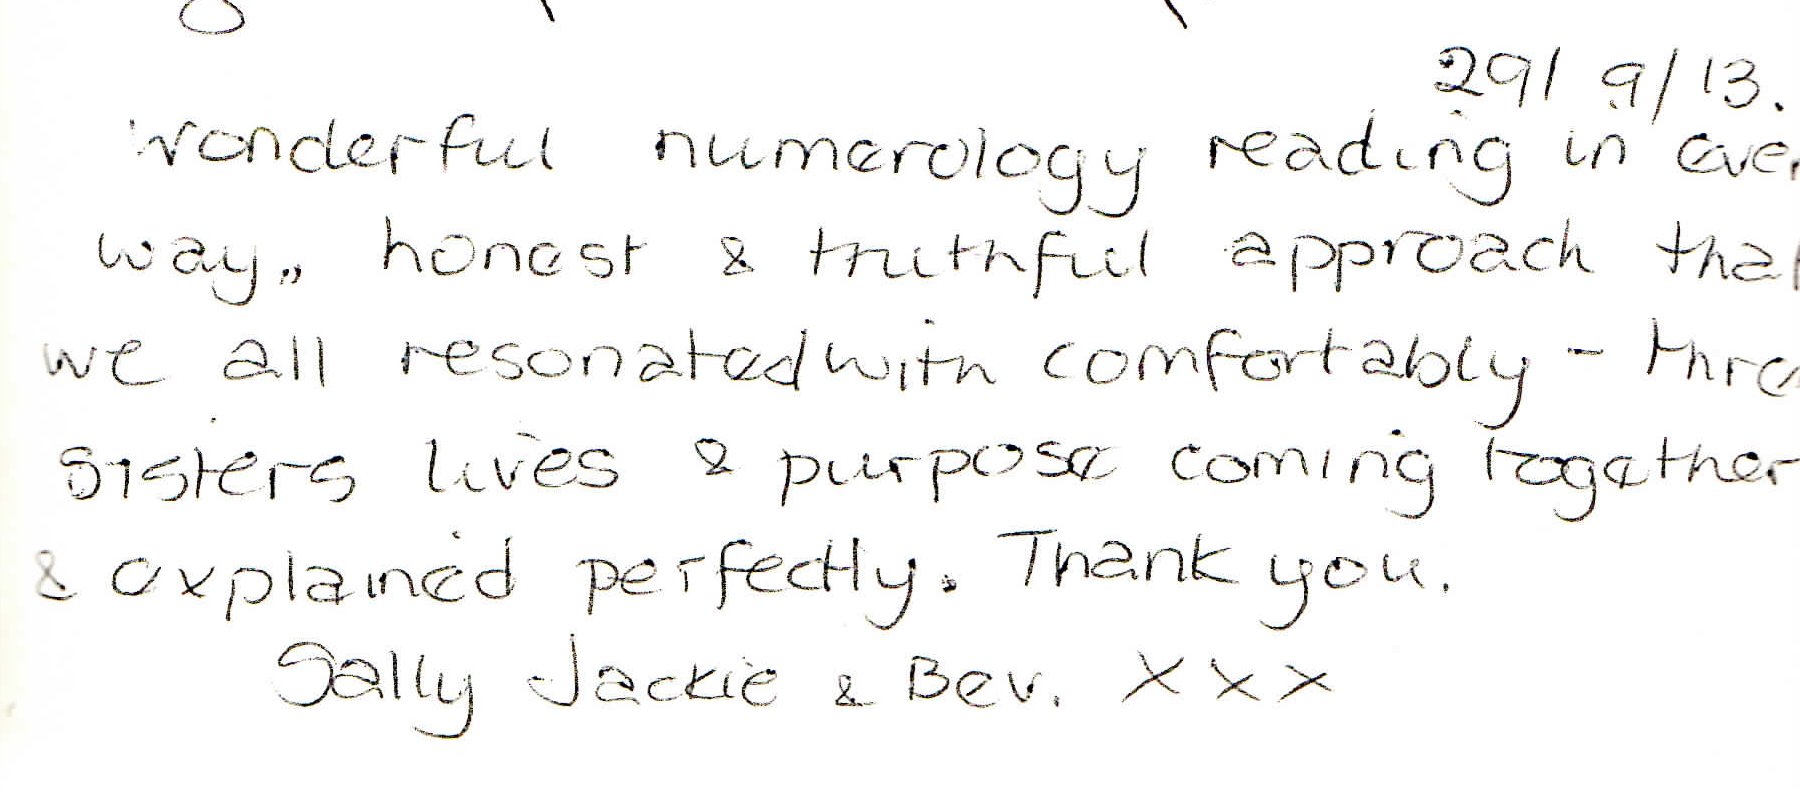 29/ 9/13.
Wonderful numerology reading in eve
way, honest & truthful approach that
we all resonated with comfortably - thre
sisters lives & purpose coming together
& explained perfectly. Thank you.
Sally Jackie & Bev. XXX